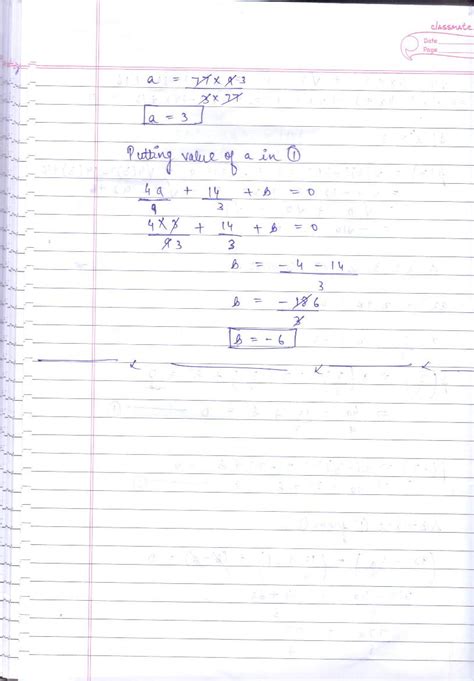 classmate
Date
Page
a = 77 × 9 3
3 × 77
a = 3
Putting value of a in ①
4a/9 + 14/3 + b = 0
4×3/9 3 + 14/3 + b = 0
b = -4-14/3
b = -18 6/3
b = -6